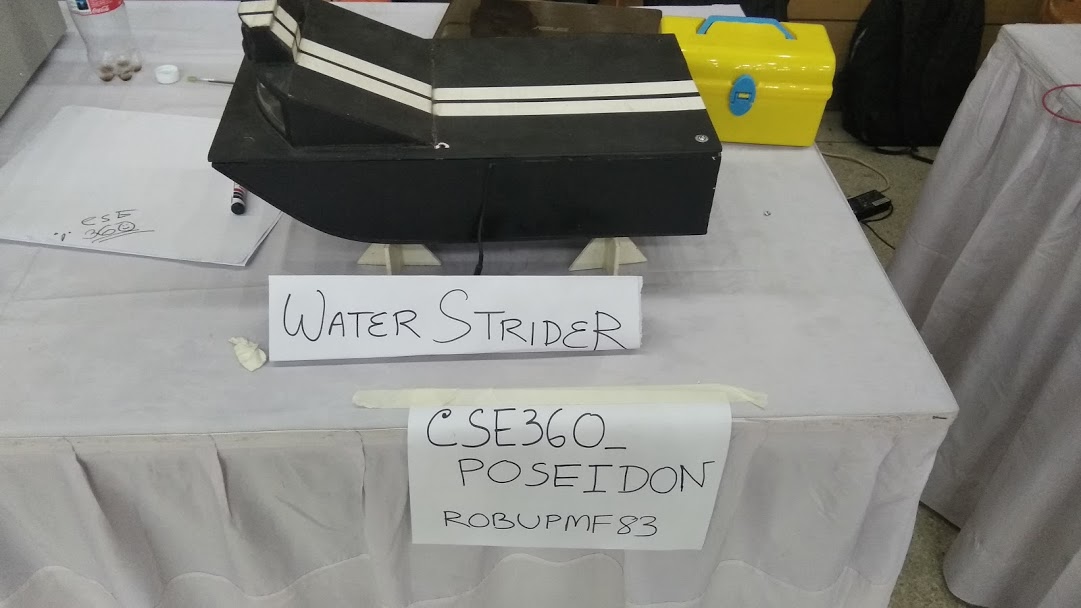 CSE
360
WATER STRIDER
CSE360_
POSEIDON
ROBUPMF83